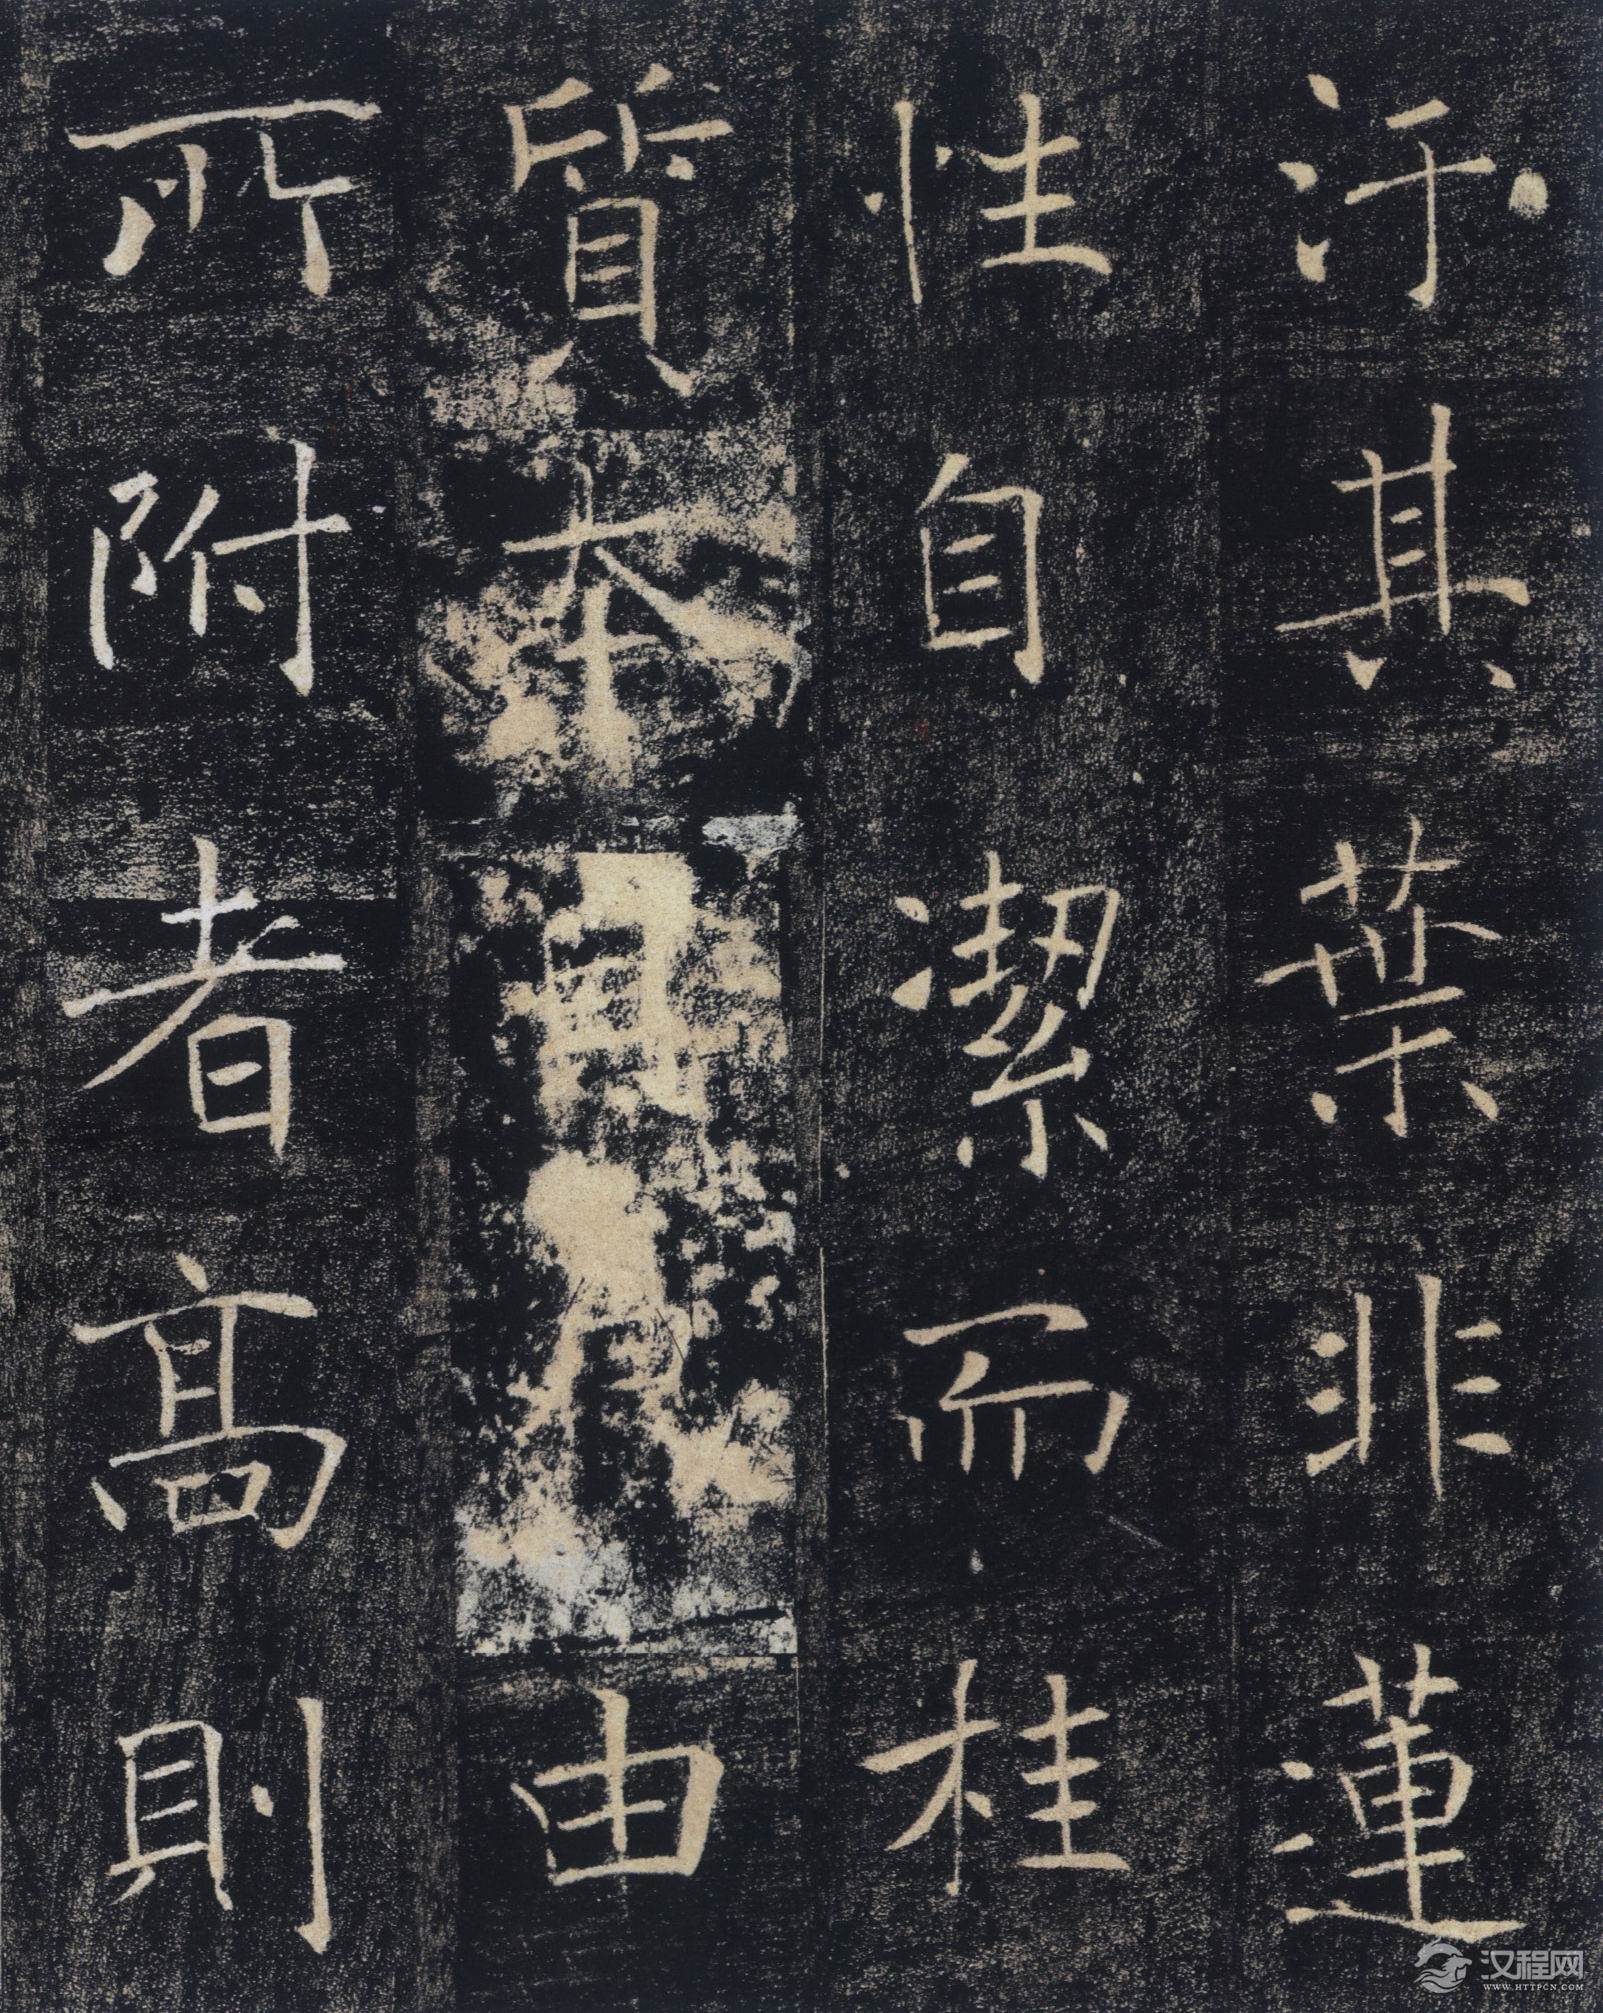 汙其葉非蓮
性自潔而桂
質本貞良由
所附者高則
汉程网
WWW.HTTPCN.COM